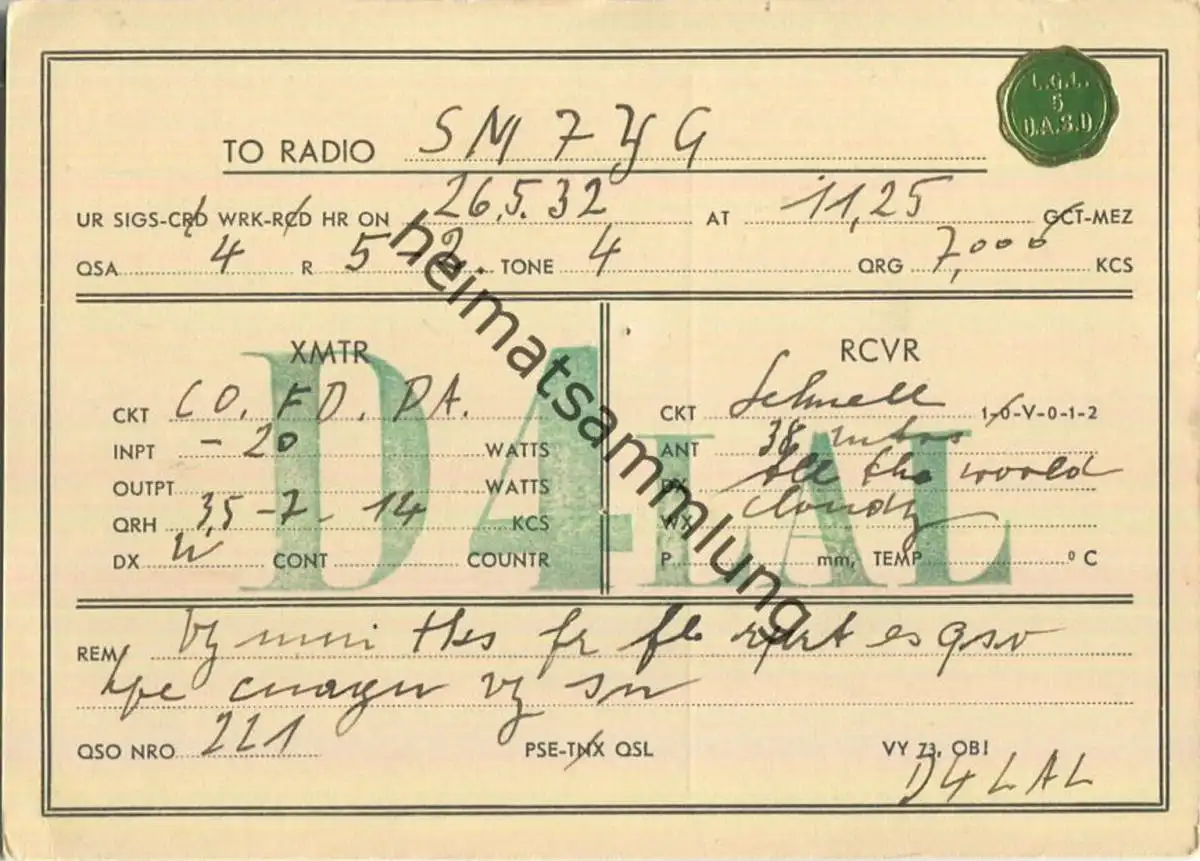 L.G.L.
5
D.A.S.D
TO RADIO SM7YG
UR SIGS-CRD WRK-RCD HR ON 26.5.32 AT 11,25 GCT-MEZ
QSA 4 R 5 TONE 4 QRG 7,000 KCS
XMTR
CKT CO. FD. PA.
INPT - 20 WATTS
OUTPT WATTS
QRH 3,5 - 7 - 14 KCS
DX W CONT COUNTR
RCVR
CKT Schnell 1-0-V-0-1-2
ANT 38 mtrs
DX All the world
WX cloudy
P mm, TEMP °C
D4LAL
heimatsammlung
REM Vy mni tks fr fb rprt es qso
hpe cuagn vy sn
QSO NRO 221
PSE-TNX QSL
VY 73, OB!
D4LAL